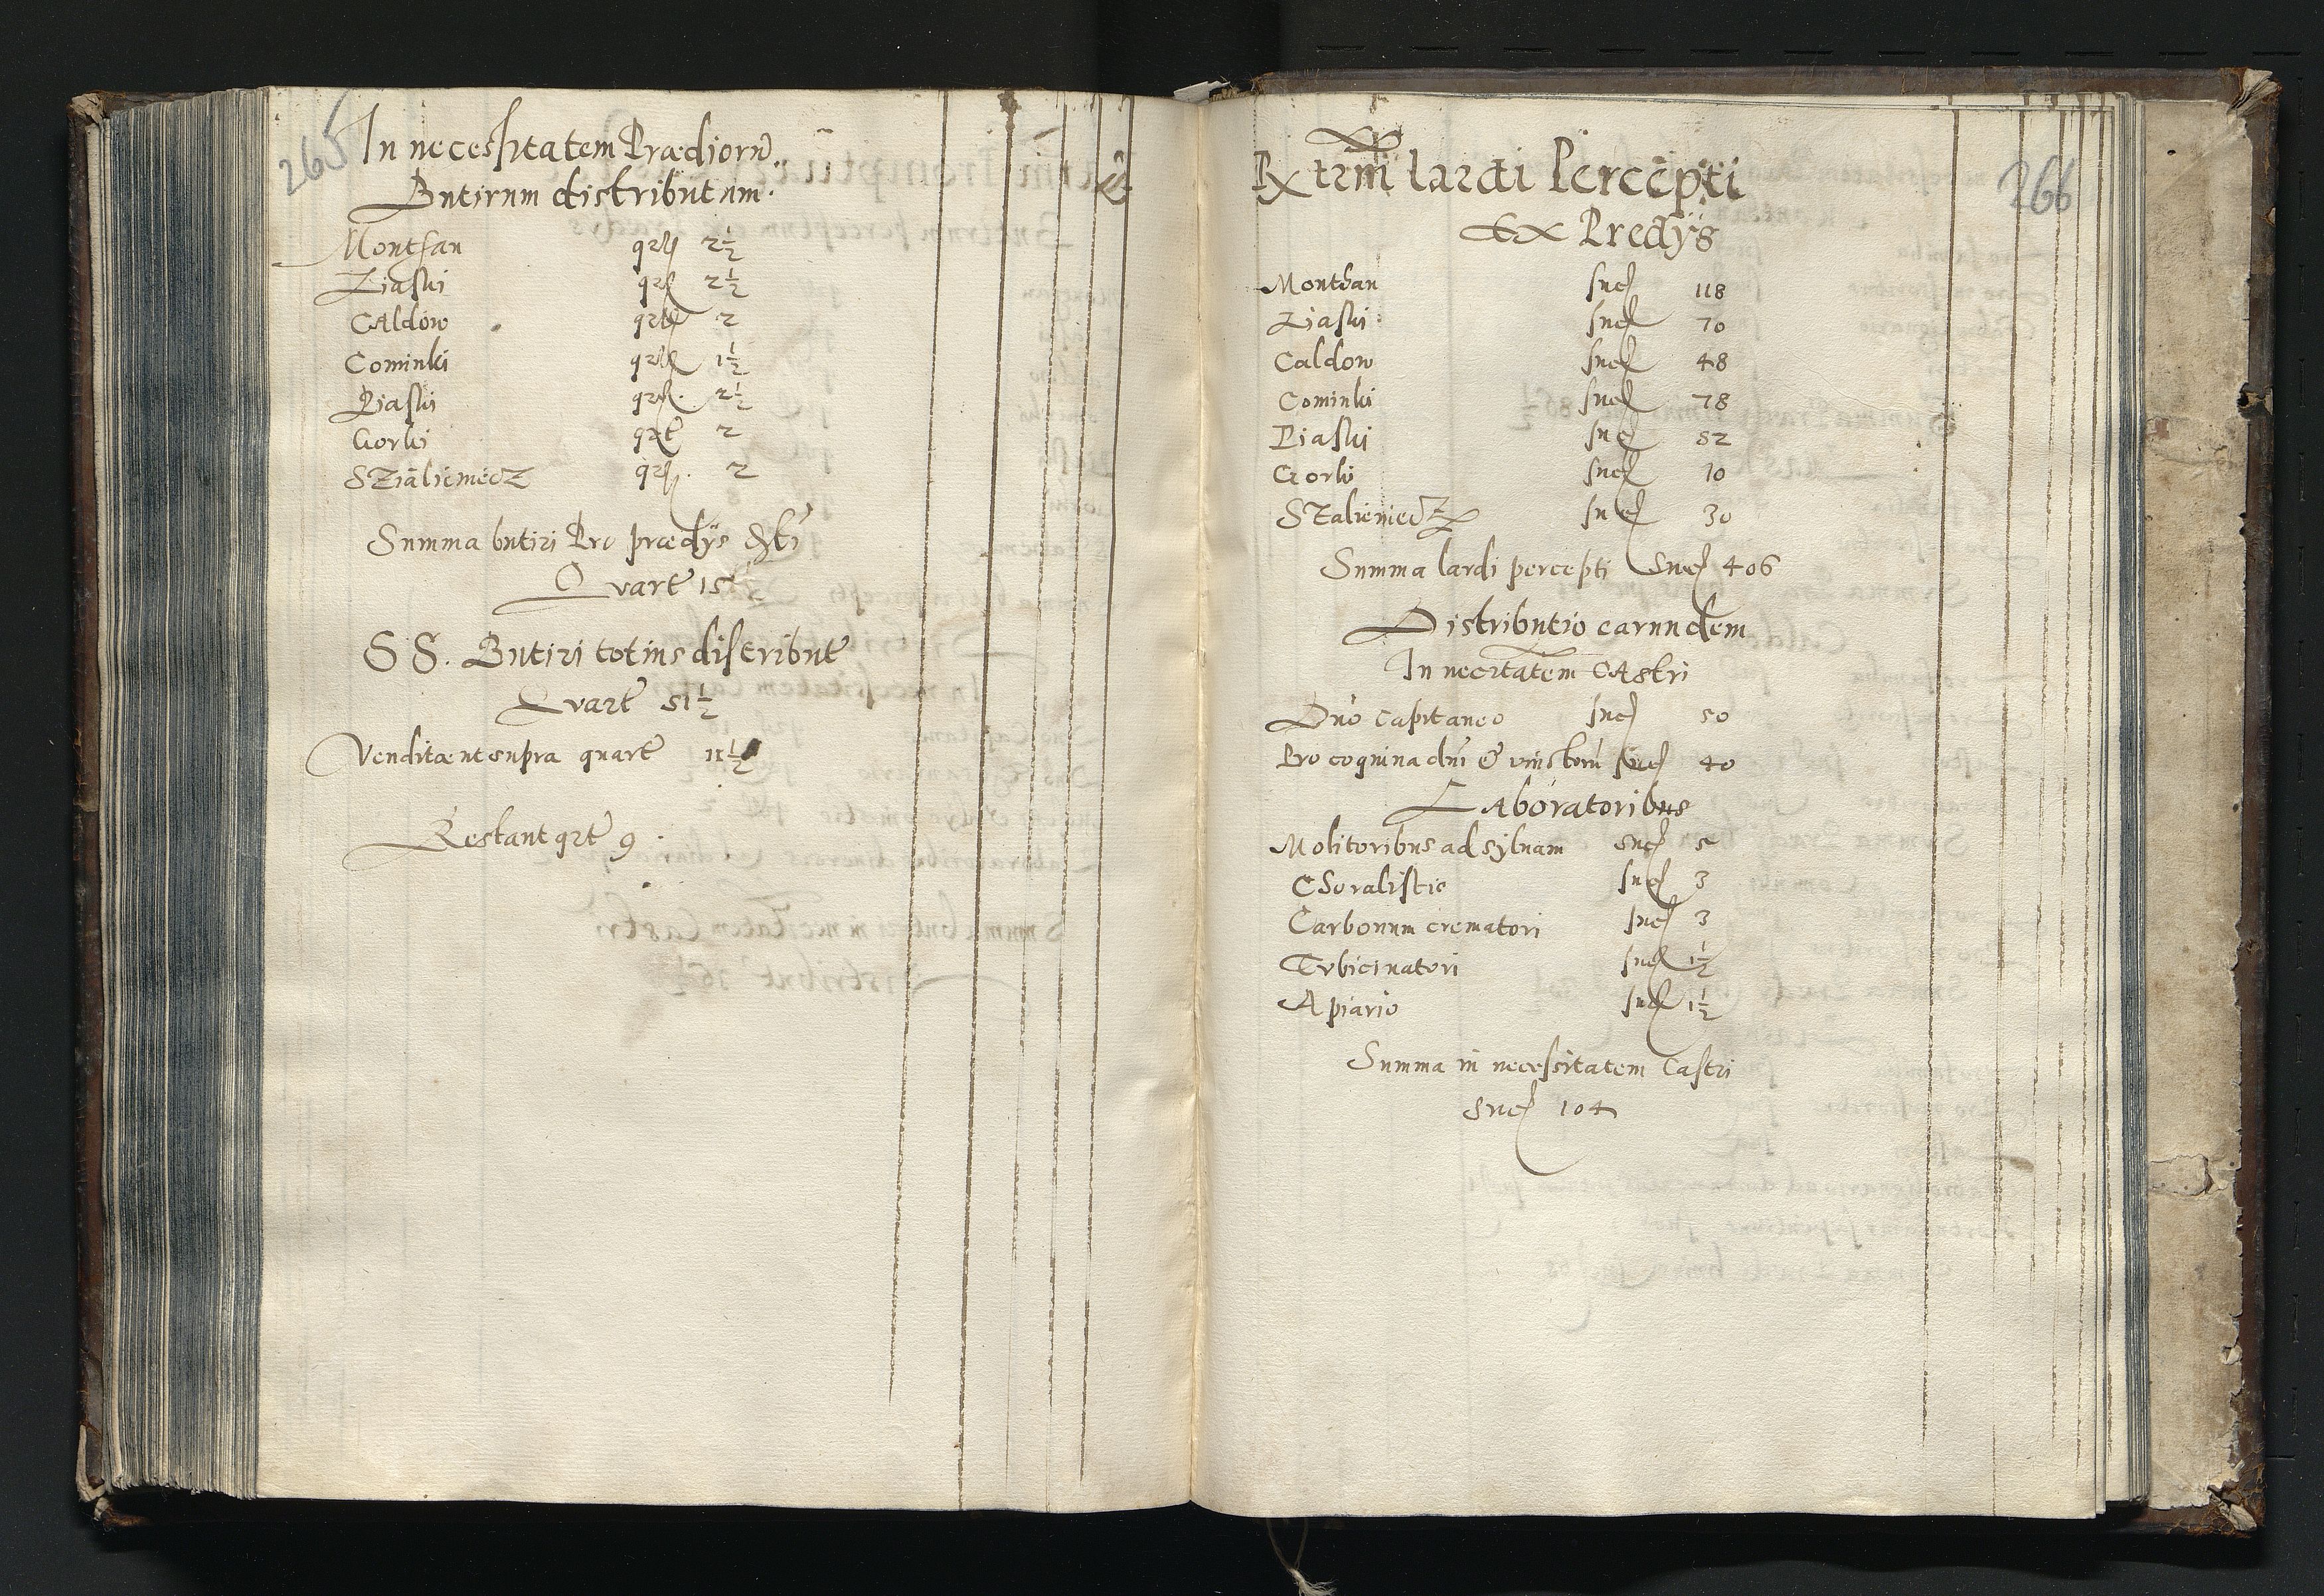 265
In necessitatem Prædiorū
Butirum distributum.
Montsan qrt 2½
Liaski qrt 2½
CAldow qrt 2
Cominki qrt 1½
Piaski qrt 2½
Gorki qrt 2
SZialieniecZ qrt 2
Summa butiri Pro prædÿs
Qvart 15
S S. Butiri totius distribut
Qvart 51½
Venditæ ut supra quart 11½
Restant qrt 9.
266
Extrni lardi Percepti
Ex PredÿS
Montsan suc 118
Liaski suc 70
Caldow suc 48
Cominki suc 78
Piaski suc 52
Gorki suc 10
SZalieniecZ suc 30
Summa lardi percepti suc 406
Distributio earundem
In necitatem CAstri
Dno Capitaneo suc 50
Pro coquina dni & suc 40
LAboratoribus
Molitoribus ad syluam suc 5
suc 3
Carbonum crematori suc 3
Tvbicinatori suc 1½
Apiario suc 1½
Summa in necessitatem Castri
suc 104